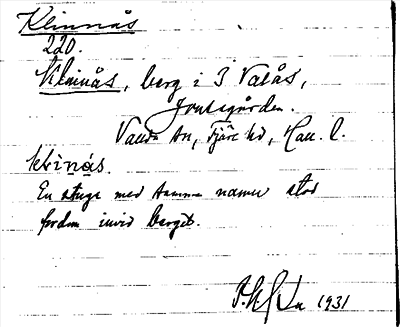 Klinnås
220.
Klinås, berg i 3 Valås,
Jonsegården.
Valda sn, Fjäre hd, Hall. l.
klinås.
En stuga med samma namn stod
fordom invid berget.
1931